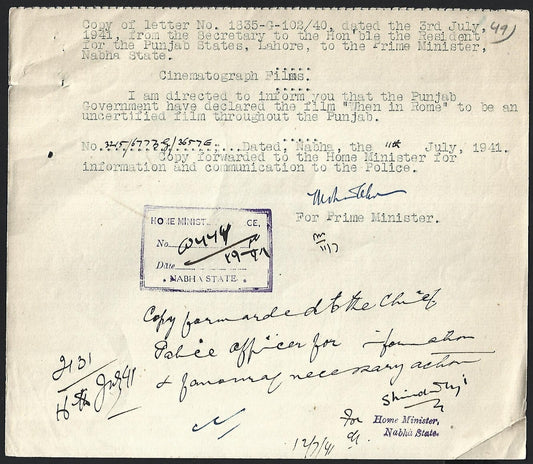 Copy of letter No. 1835-G-102/40, dated the 3rd July,
1941, from the Secretary to the Hon'ble the Resident
for the Punjab States, Lahore, to the Prime Minister,
Nabha State.
Cinematograph Films.
I am directed to inform you that the Punjab
Government have declared the film "When in Rome" to be an
uncertified film throughout the Punjab.
No. Dated, Nabha, the 11th July, 1941.
Copy forwarded to the Home Minister for
information and communication to the Police.
For Prime Minister.
HOME MINIST CE,
No.
Date
NABHA STATE.
Copy forwarded to the Chief
Police officer for information
& favour of necessary action
2131
16th July 41
For
Home Minister,
Nabha State.
12/7/41